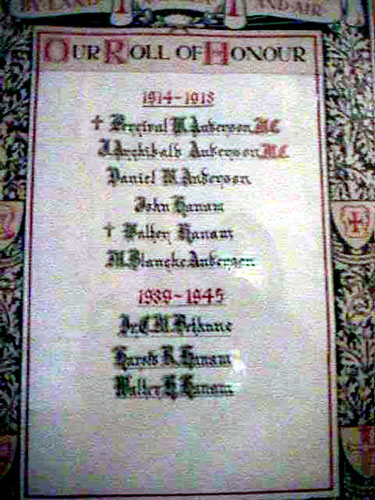 LAND AND AIR
OUR ROLL OF HONOUR
1914-1918
† Percival W. Anderson, M.C
J. Archibald Anderson, M.C.
Daniel W. Anderson
John Hanam
† Walter Hanam
M. Blanche Anderson
1939-1945
Dr. C. M. Bethune
Harold R. Hanam
Walter H. Hanam